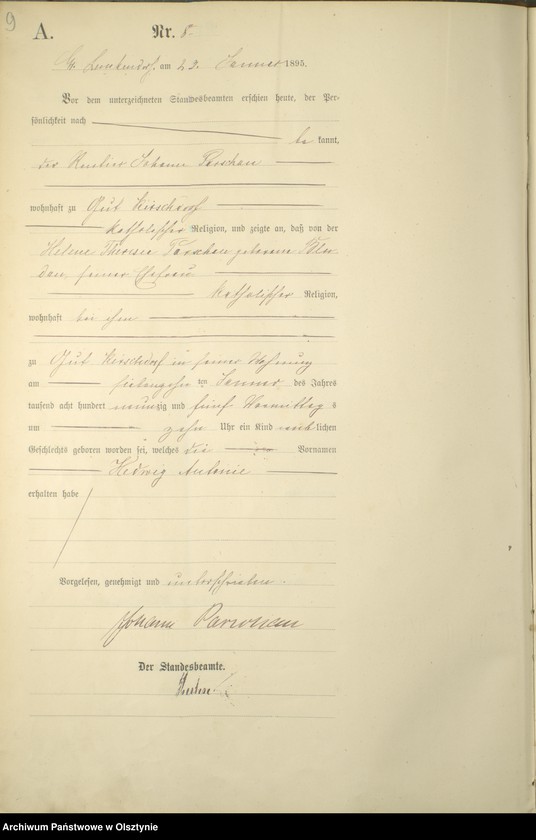 9
A.
Nr. 5
Gr. am 22. Januar 1895.
Vor dem unterzeichneten Standesbeamten erschien heute, der Per-
sönlichkeit nach
be kannt,
der Rentier Johann
wohnhaft zu Gut
katholischer Religion, und zeigte an, daß von der
Helene Therese geborene
seiner Ehefrau
katholischer Religion,
wohnhaft bei ihm
zu Gut in seiner Wohnung
am siebenzehn ten Januar des Jahres
tausend acht hundert neunzig und fünf Vormittag s
um zehn Uhr ein Kind weib lichen
Geschlechts geboren worden sei, welches die Vornamen
Hedwig Antonie
erhalten habe
Vorgelesen, genehmigt und unterschrieben
Johann
Der Standesbeamte.
Archiwum Państwowe w Olsztynie